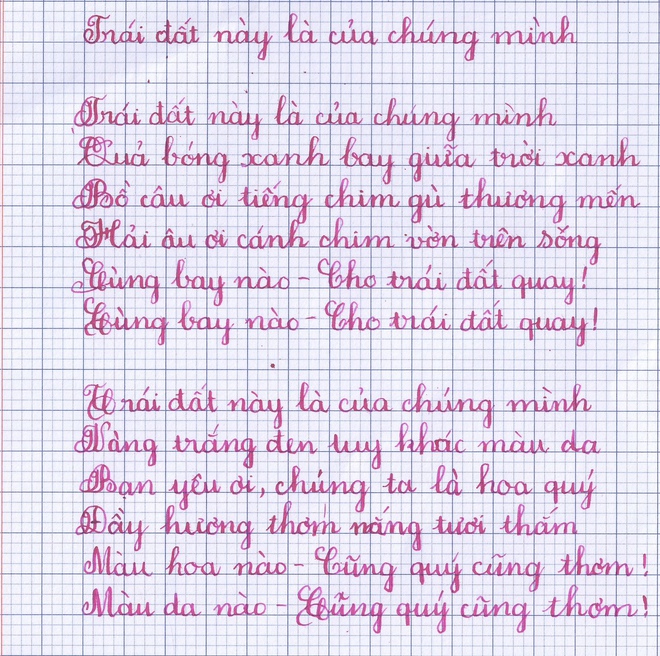 Trái đất này là của chúng mình
Trái đất này là của chúng mình
Quả bóng xanh bay giữa trời xanh
Bồ câu ơi tiếng chim gù thương mến
Hải âu ơi cánh chim vờn trên sóng
Cùng bay nào - Cho trái đất quay!
Cùng bay nào - Cho trái đất quay!
Trái đất này là của chúng mình
Vàng trắng đen tuy khác màu da
Bạn yêu ơi, chúng ta là hoa quý
Đầy hương thơm nắng tươi thắm
Màu hoa nào - Cũng quý cũng thơm!
Màu da nào - Cũng quý cũng thơm!